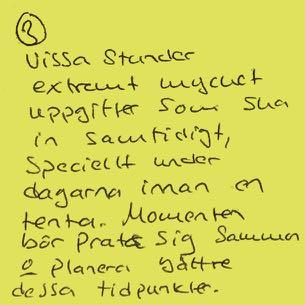 2
Vissa Stunder
extremt mycket
uppgifter som ska
in samtidigt,
Speciellt under
dagarna innan en
tenta. Momenten
bör Prata Sig Samman
o planera bättre
dessa tidpunkter.